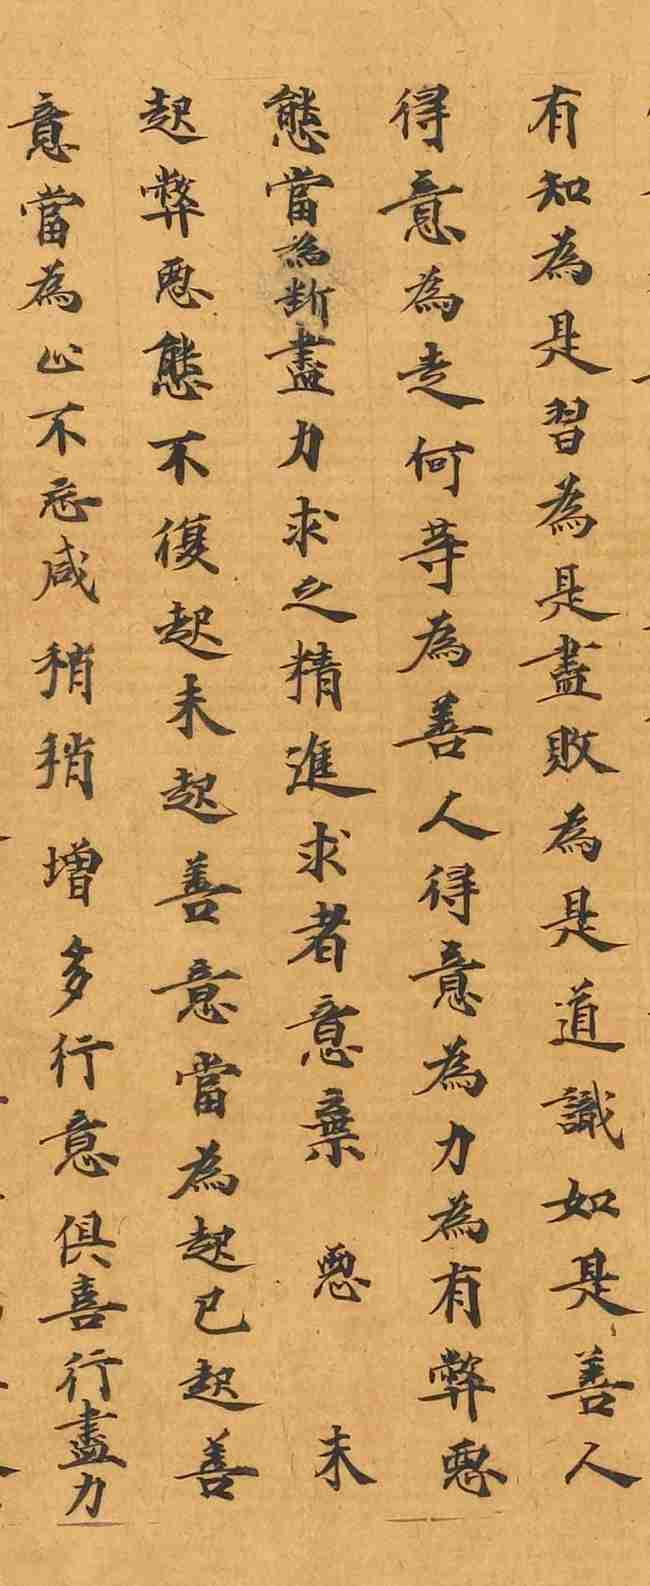 有知為是習為是盡敗為是道識如是善人
得意為走何等為善人得意為力為有弊惡
態當為斷盡力求之精進求者意棄惡未
起弊惡態不復起未起善意當為起已起善
意當為止不忘咸稍稍增多行意俱喜行盡力